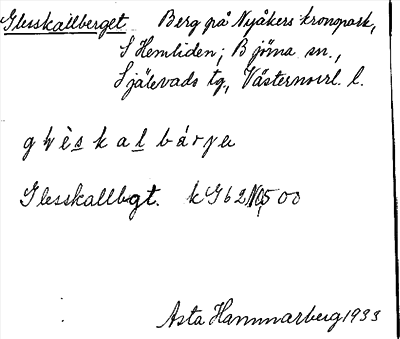 Glesskallberget Berg på Nyåkers kronopark,
S Hemliden; Björna sn.,
Själevads tg, Västernorrl. l.
skalbárja
Glesskallbgt. kG62
00
Asta Hammarberg 1933